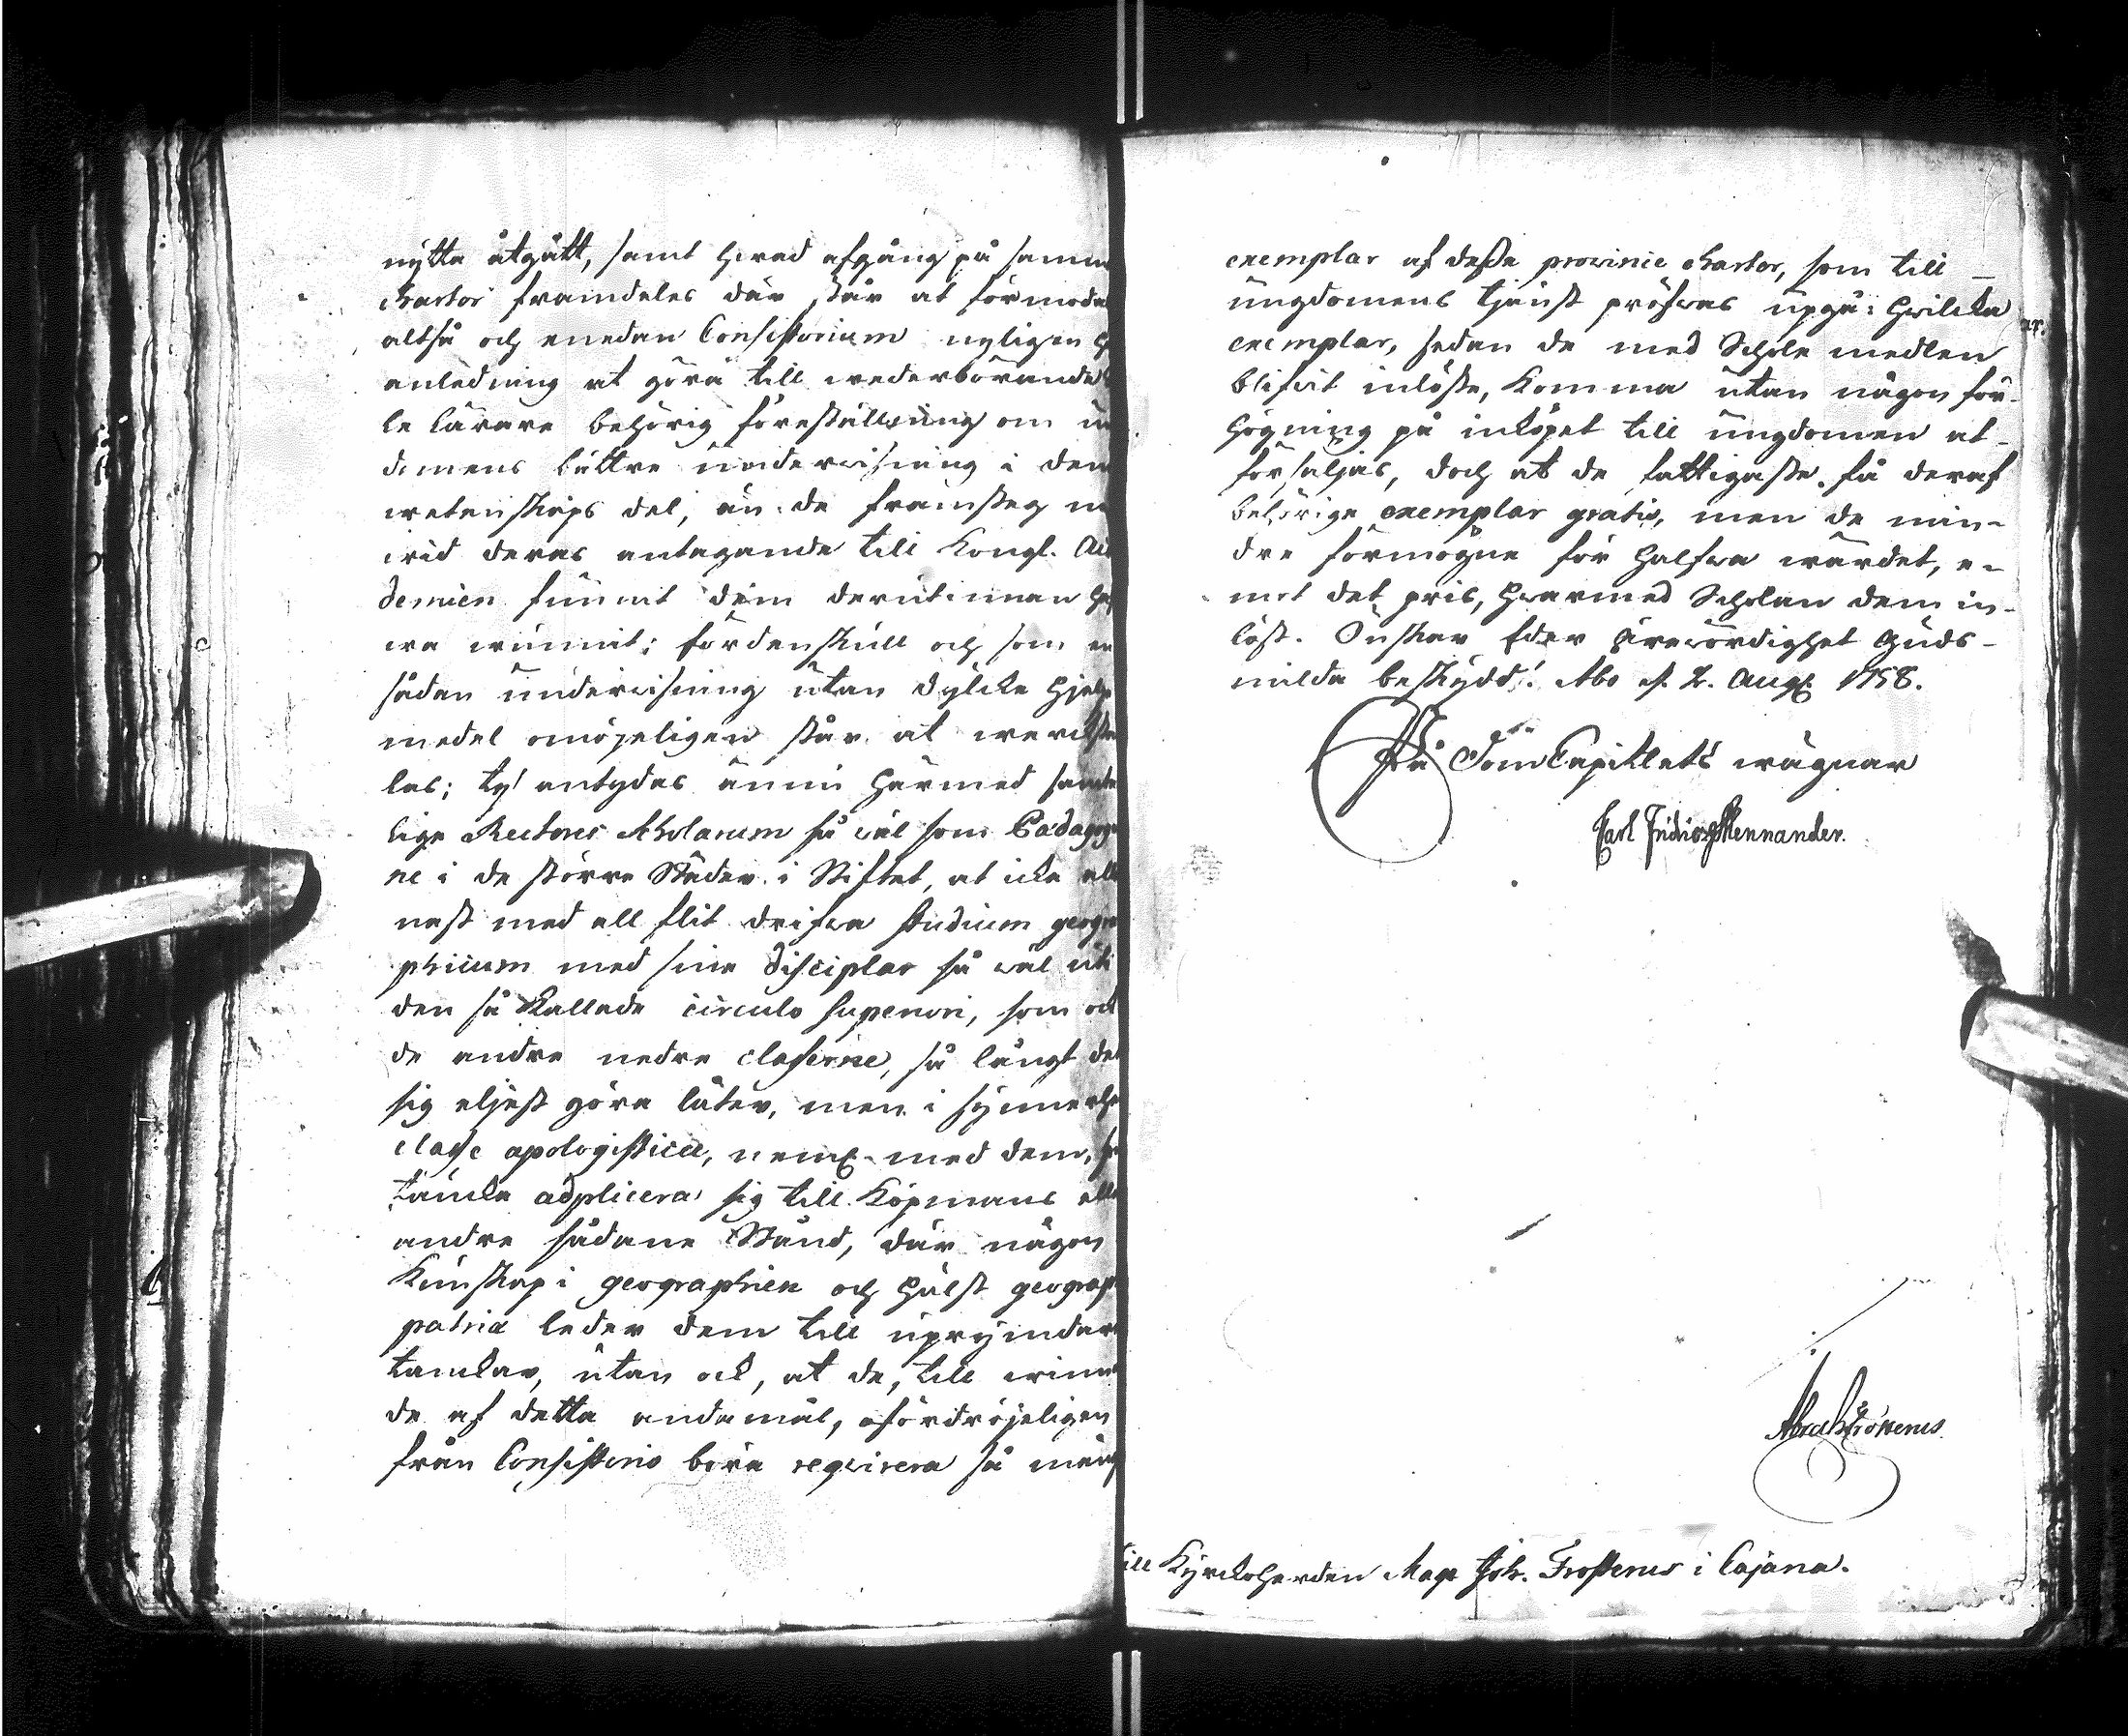 nytta åtgått, samt hwad afgång på samma
chartor framdeles där står at förmoda
altså och enedan Consistorium nyligen
anledning at göra till wederbörande
le Lärare behörig föreställning om
domens bättre underwisning i den
wetenskaps del, än de framsteg
wid deras antagande till Kongl.
demien funnit dem derutinnan
wa wunnit; fördenskull och som en
sådan underwisning utan dylika hjelpe
medel omöjeligen står at werckstä
las; ty antydas ännu härmed samte
lige Rectores Scholarum så wäl som Pædagoger
ne i de större Städer i Stiftet, at icke alle
nast med all flit drifwa studium geogra
phicum med sine disciplar så wäl uti
den så kallade circulo superiori, som ock
de andre nedre classerne, så långt det
sig eljest göra låter, men i synnerhe
classe apologistica, neml. med dem,
täncka adplicera sig till Köpmans elle
andre sådane Stånd, där någon
Kunskap i geographien och hälst geograph
patriæ leder dem till uprymdare
tanckar, utan ock, at de, till winnan
de af detta ändamål, ofördröjeligen
från Consistorio böra requirera så mång
exemplar af desse provincie chartor, som till
ungdomens tjenst pröfwas upgå: hwilcka
exemplar, sedan de med Schole medlen
blifwit inlöste, komma utan någon för-
högning på inköpet till ungdomen at
försäljas, doch at de fattigaste få deraf
behörige exemplar gratis, men de min-
dre förmögne för halfwa wärdet, e-
mot det pris, hwarmed Scholan dem in-
löst. Önskar Eder Ärewördighet Guds
milda beskydd! Åbo d. 2. Aug. 1758.
På DomCapitlets wägnar
Carl Fridric Mennander.
till Kyrckoherden Mag. Joh. Frosterus i Cajana.